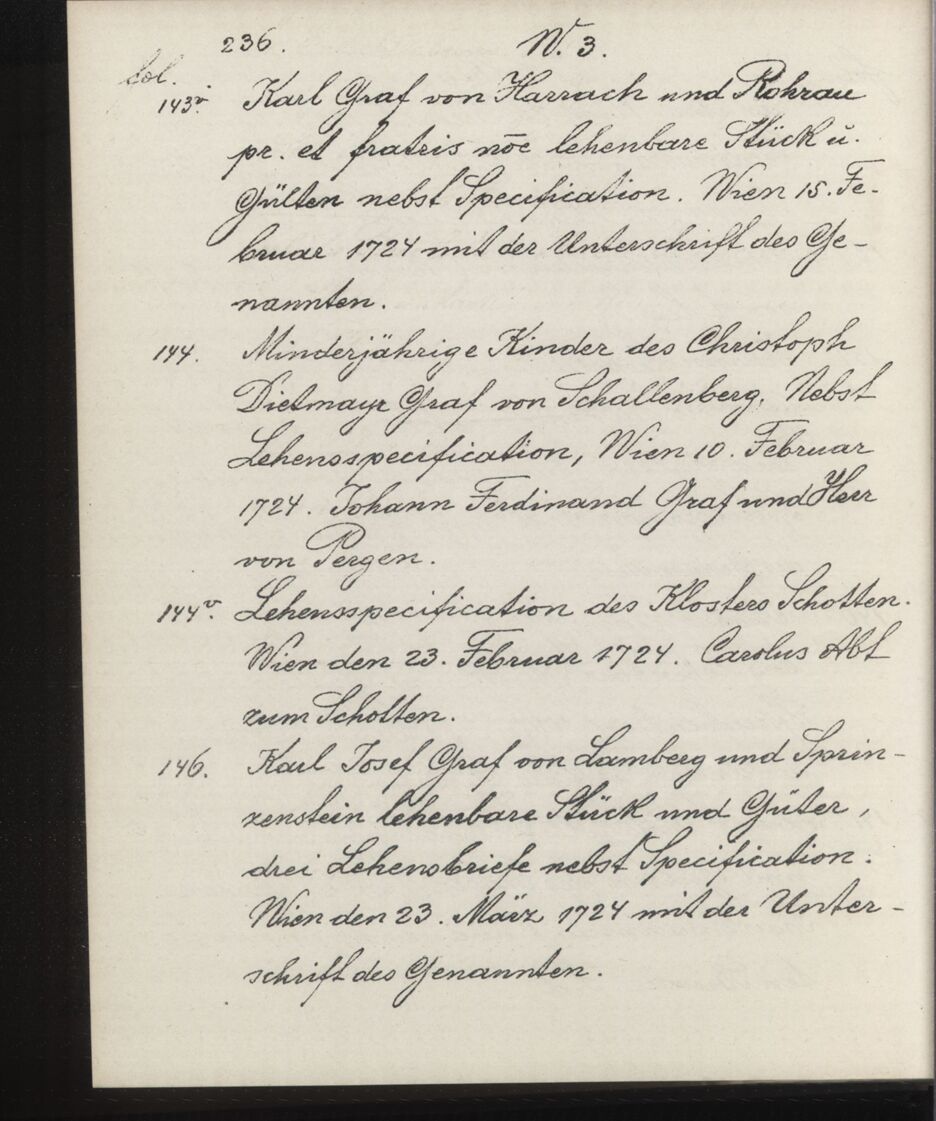 236. N. 3.
fol.
143v. Karl Graf von Harrach und Rohrau
pr. et fratris nōe lehenbare Stück ŭ.
Gülten nebst Specification. Wien 15. Fe-
bruar 1724 mit der Unterschrift des Ge-
nannten.
144. Minderjährige Kinder des Christoph
Dietmayr Graf von Schallenberg. Nebst
Lehensspecification, Wien 10. Februar
1724. Johann Ferdinand Graf und Herr
von Pergen.
144v. Lehensspecification des Klosters Schotten.
Wien den 23. Februar 1724. Carolus Abt
zum Schotten.
146. Karl Josef Graf von Lamberg und Sprin-
zenstein lehenbare Stück und Güter,
drei Lehensbriefe nebst Specification.
Wien den 23. März 1724 mit der Unter-
schrift des Genannten.